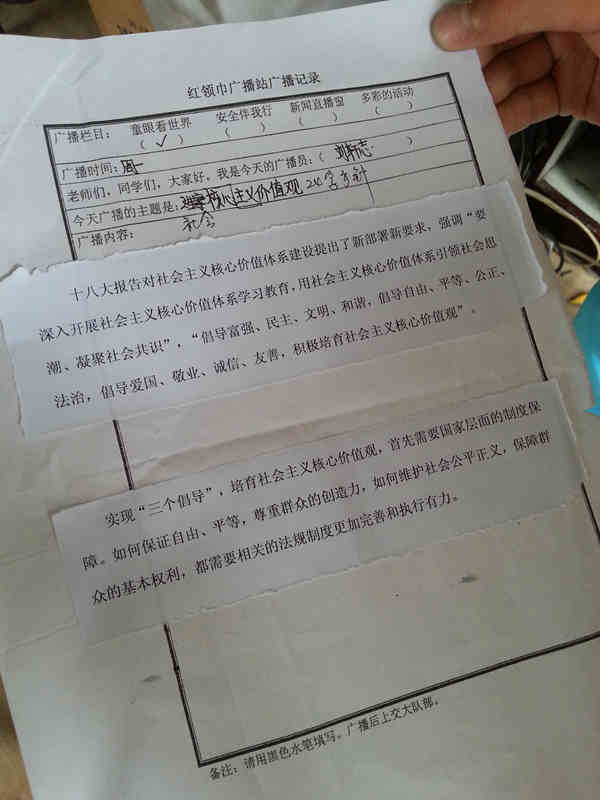 红领巾广播站广播记录
广播栏目： 童眼看世界 安全伴我行 新闻直播窗 多彩的活动
（ ✓ ） （ ） （ ） （ ）
广播时间：周一
老师们，同学们，大家好。我是今天的广播员：（ ）
今天广播的主题是： 核心主义价值观24字方针
社会
广播内容：
十八大报告对社会主义核心价值体系建设提出了新部署新要求，强调“要
深入开展社会主义核心价值体系学习教育，用社会主义核心价值体系引领社会思
潮、凝聚社会共识”，“倡导富强、民主、文明、和谐，倡导自由、平等、公正、
法治，倡导爱国、敬业、诚信、友善，积极培育社会主义核心价值观”。
实现“三个倡导”，培育社会主义核心价值观，首先需要国家层面的制度保
障。如何保证自由、平等，尊重群众的创造力，如何维护社会公平正义，保障群
众的基本权利，都需要相关的法规制度更加完善和执行有力。
备注：请用黑色水笔填写。广播后上交大队部。